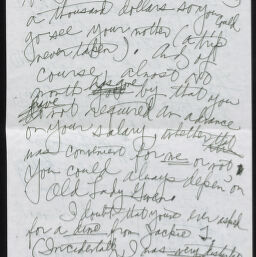 a thousand dollars so you could
go see your mother (a trip
never taken). And of
course, almost no
month has gone by that you
have not required an advance
on your salary, whether it
was convenient for me or not.
You could always depen' on
Old Lady
I doubt that you've ever asked
for a dime from Jackie
(Incidentally, I was very